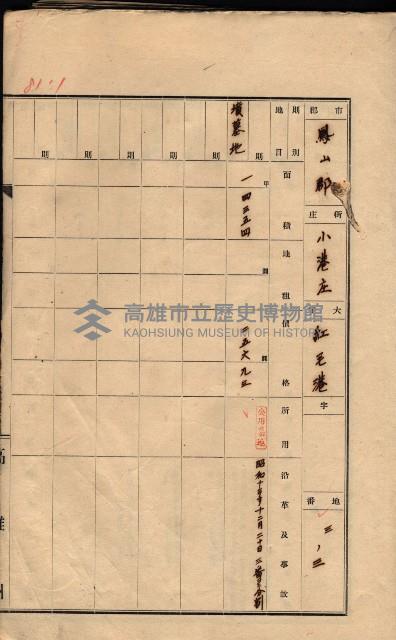 市郡 鳳山郡 街庄 小港庄 大字 紅毛港 字 地番 三ノ三
則別 地目 面積 地租 價格 所用 沿革及事故
墳墓地 則 甲 一四三五四 圓 圓 一五六九三 昭和十年十二月二十日三番ヨリ分割
則
則
則
則
則
則
高雄州
高雄市立歷史博物館
KAOHSIUNG MUSEUM OF HISTORY